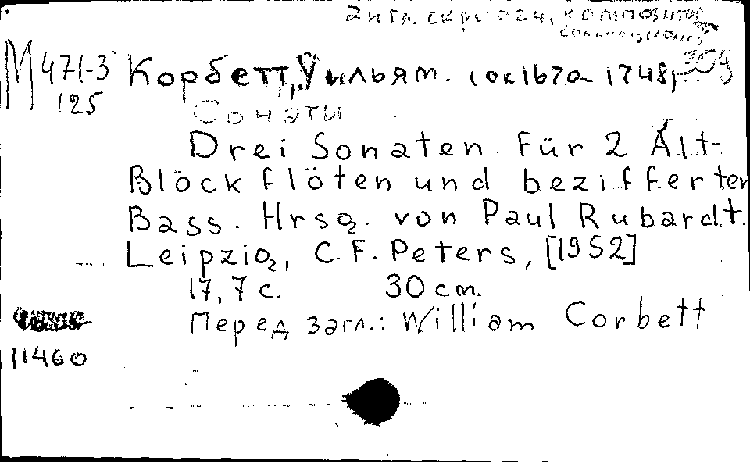 англ. скрипач, композитор
M 471-3
125
Корбетт, Уильям. (ок 1670-1748)
Сонаты
Drei Sonaten für 2 Alt-
Blockflöten und bezifferten
Bass. Hrsg. von Paul Rubardt.
Leipzig, C. F. Peters, [1952]
17, 7 с. 30 cm.
Перед загл.: William Corbett
11460